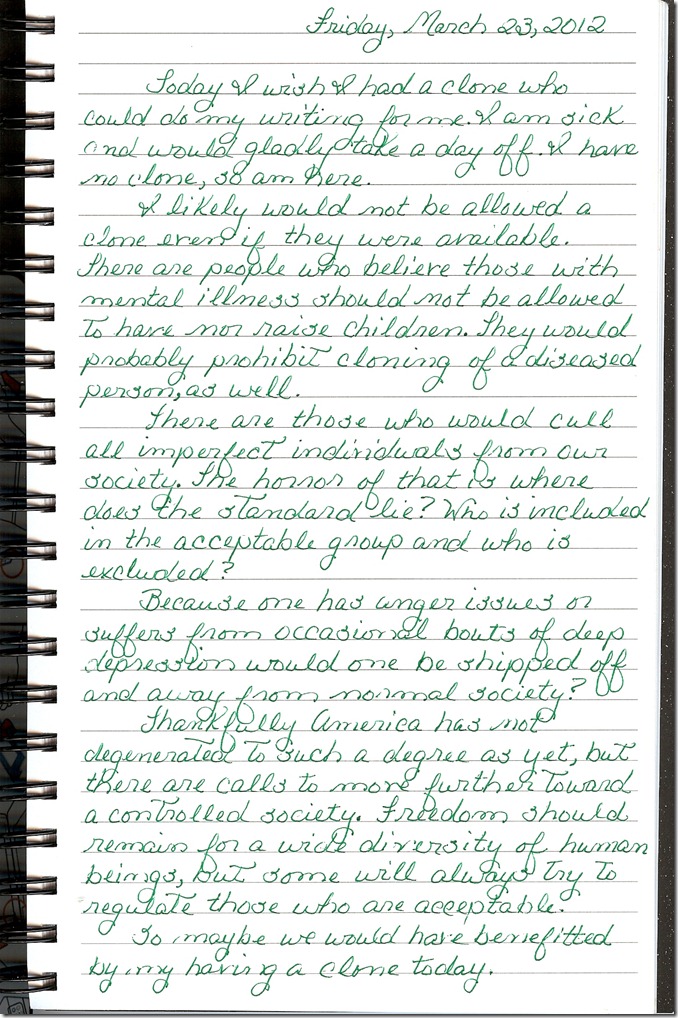 Friday, March 23, 2012
Today I wish I had a clone who
could do my writing for me. I am sick
and would gladly take a day off. I have
no clone, so am here.
I likely would not be allowed a
clone even if they were available.
There are people who believe those with
mental illness should not be allowed
to have nor raise children. They would
probably prohibit cloning of a diseased
person, as well.
There are those who would cull
all imperfect individuals from our
society. The horror of that is where
does the standard lie? Who is included
in the acceptable group and who is
excluded?
Because one has anger issues or
suffers from occasional bouts of deep
depression would one be shipped off
and away from normal society?
Thankfully America has not
degenerated to such a degree as yet, but
there are calls to move further toward
a controlled society. Freedom should
remain for a wide diversity of human
beings, but some will always try to
regulate those who are acceptable.
So maybe we would have benefitted
by my having a clone today.